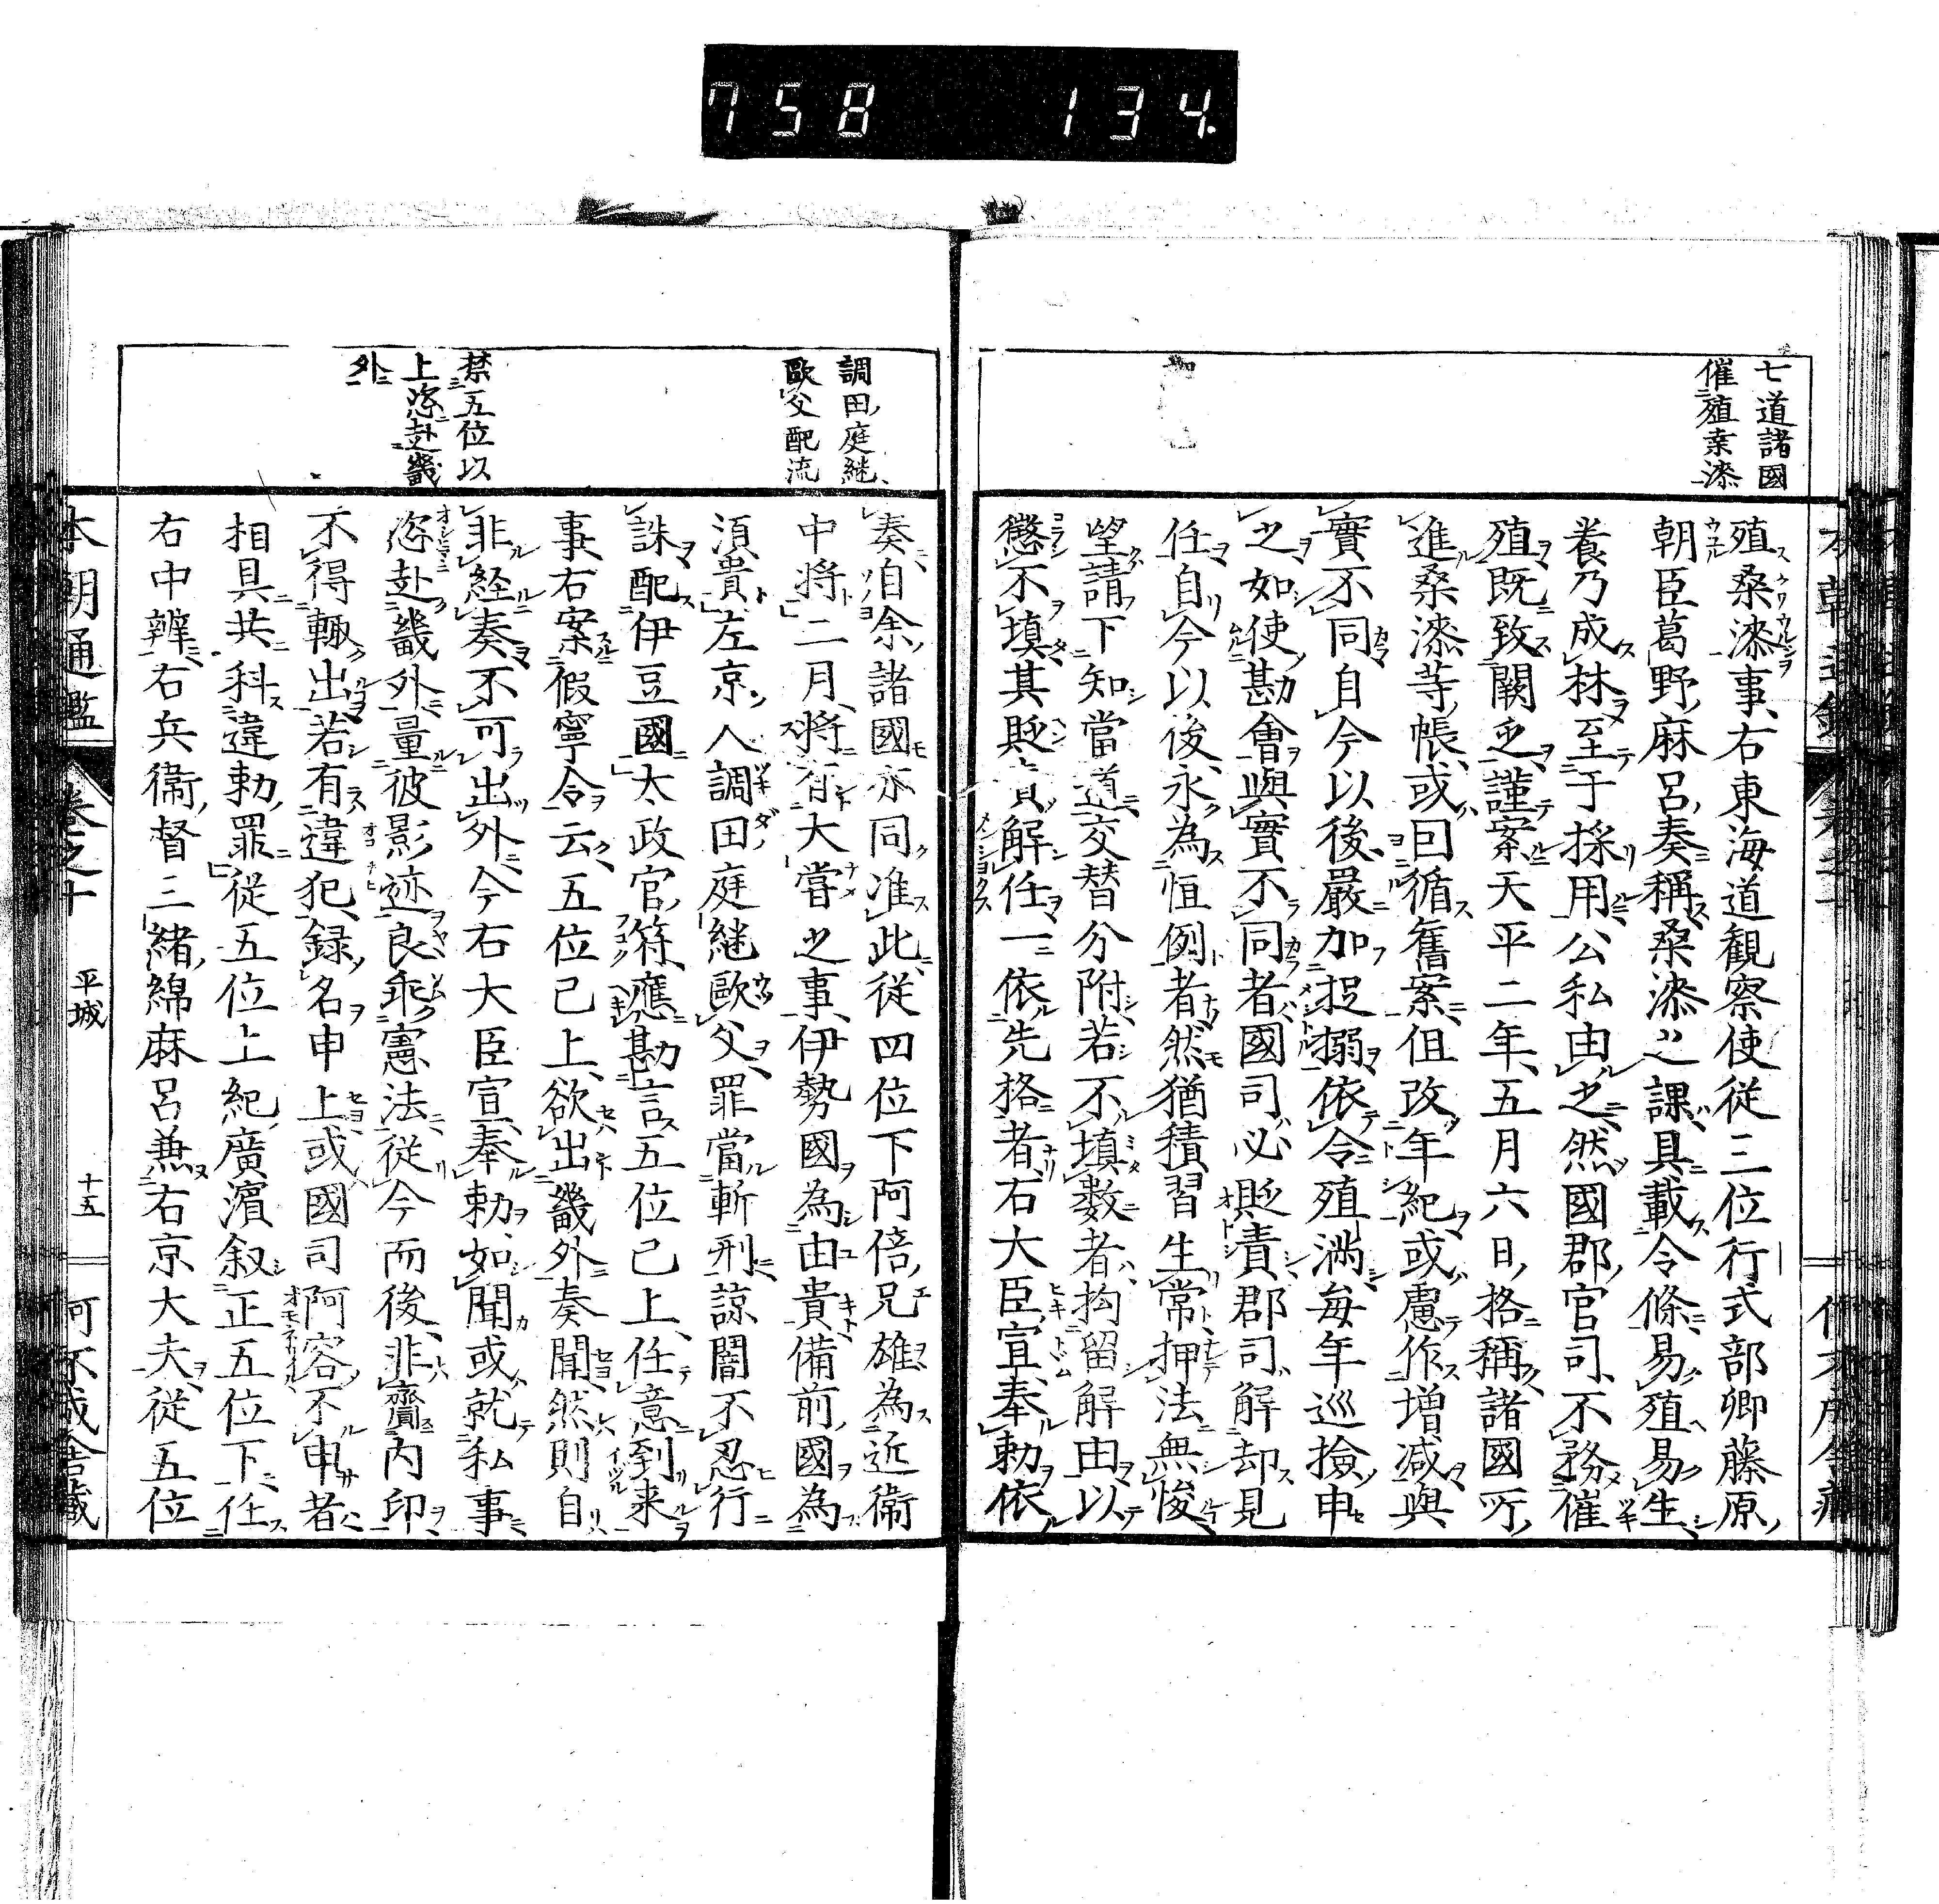 758 134.
七道諸國
催殖桒漆
殖桑漆事、右東海道觀察使從三位行式部卿藤原
朝臣葛野麻呂奏稱桑漆之課具載令條易殖易生
養乃成林至于採用公私由之然國郡官司不務催
殖既致闕乏謹案天平二年五月六日格稱諸國所
進桑漆等帳或因循舊案但改年紀或慮作增減與
實不同自今以後嚴加捉搦依令殖滿每年巡撿申
之如使勘會與實不同者國司必貶責郡司解却見
任自今以後永為恒例者然猶積習生常押法無悛
望請下知當道交替分附若不填數者拘留解由以
懲不填其貶責解任一依先格者右大臣宣奉勅依
調田庭継
歐父配流
禁五位以
上恣赴畿
外
奏自余諸國亦同准此從四位下阿倍兄雄為近衛
中將二月將有大嘗之事伊勢國為由貴備前國為
湏貴左京人調田庭継歐父罪當斬刑諒闇不忍行
誅配伊豆國太政官符應勘言五位已上任意到来
事右案假寧令云五位已上欲出畿外奏聞然則自
非経奏不可出外今右大臣宣奉勅如聞或就私事
恣赴畿外量彼影迹良乖憲法從今而後非齎内印
不得輙出若有違犯録名申上或國司阿容不申者
相具共科違勅罪從五位上紀廣濱叙正五位下任
右中辨右兵衞督三緒綿麻呂兼右京大夫從五位
本朝通鑑 卷之十 平城 十五